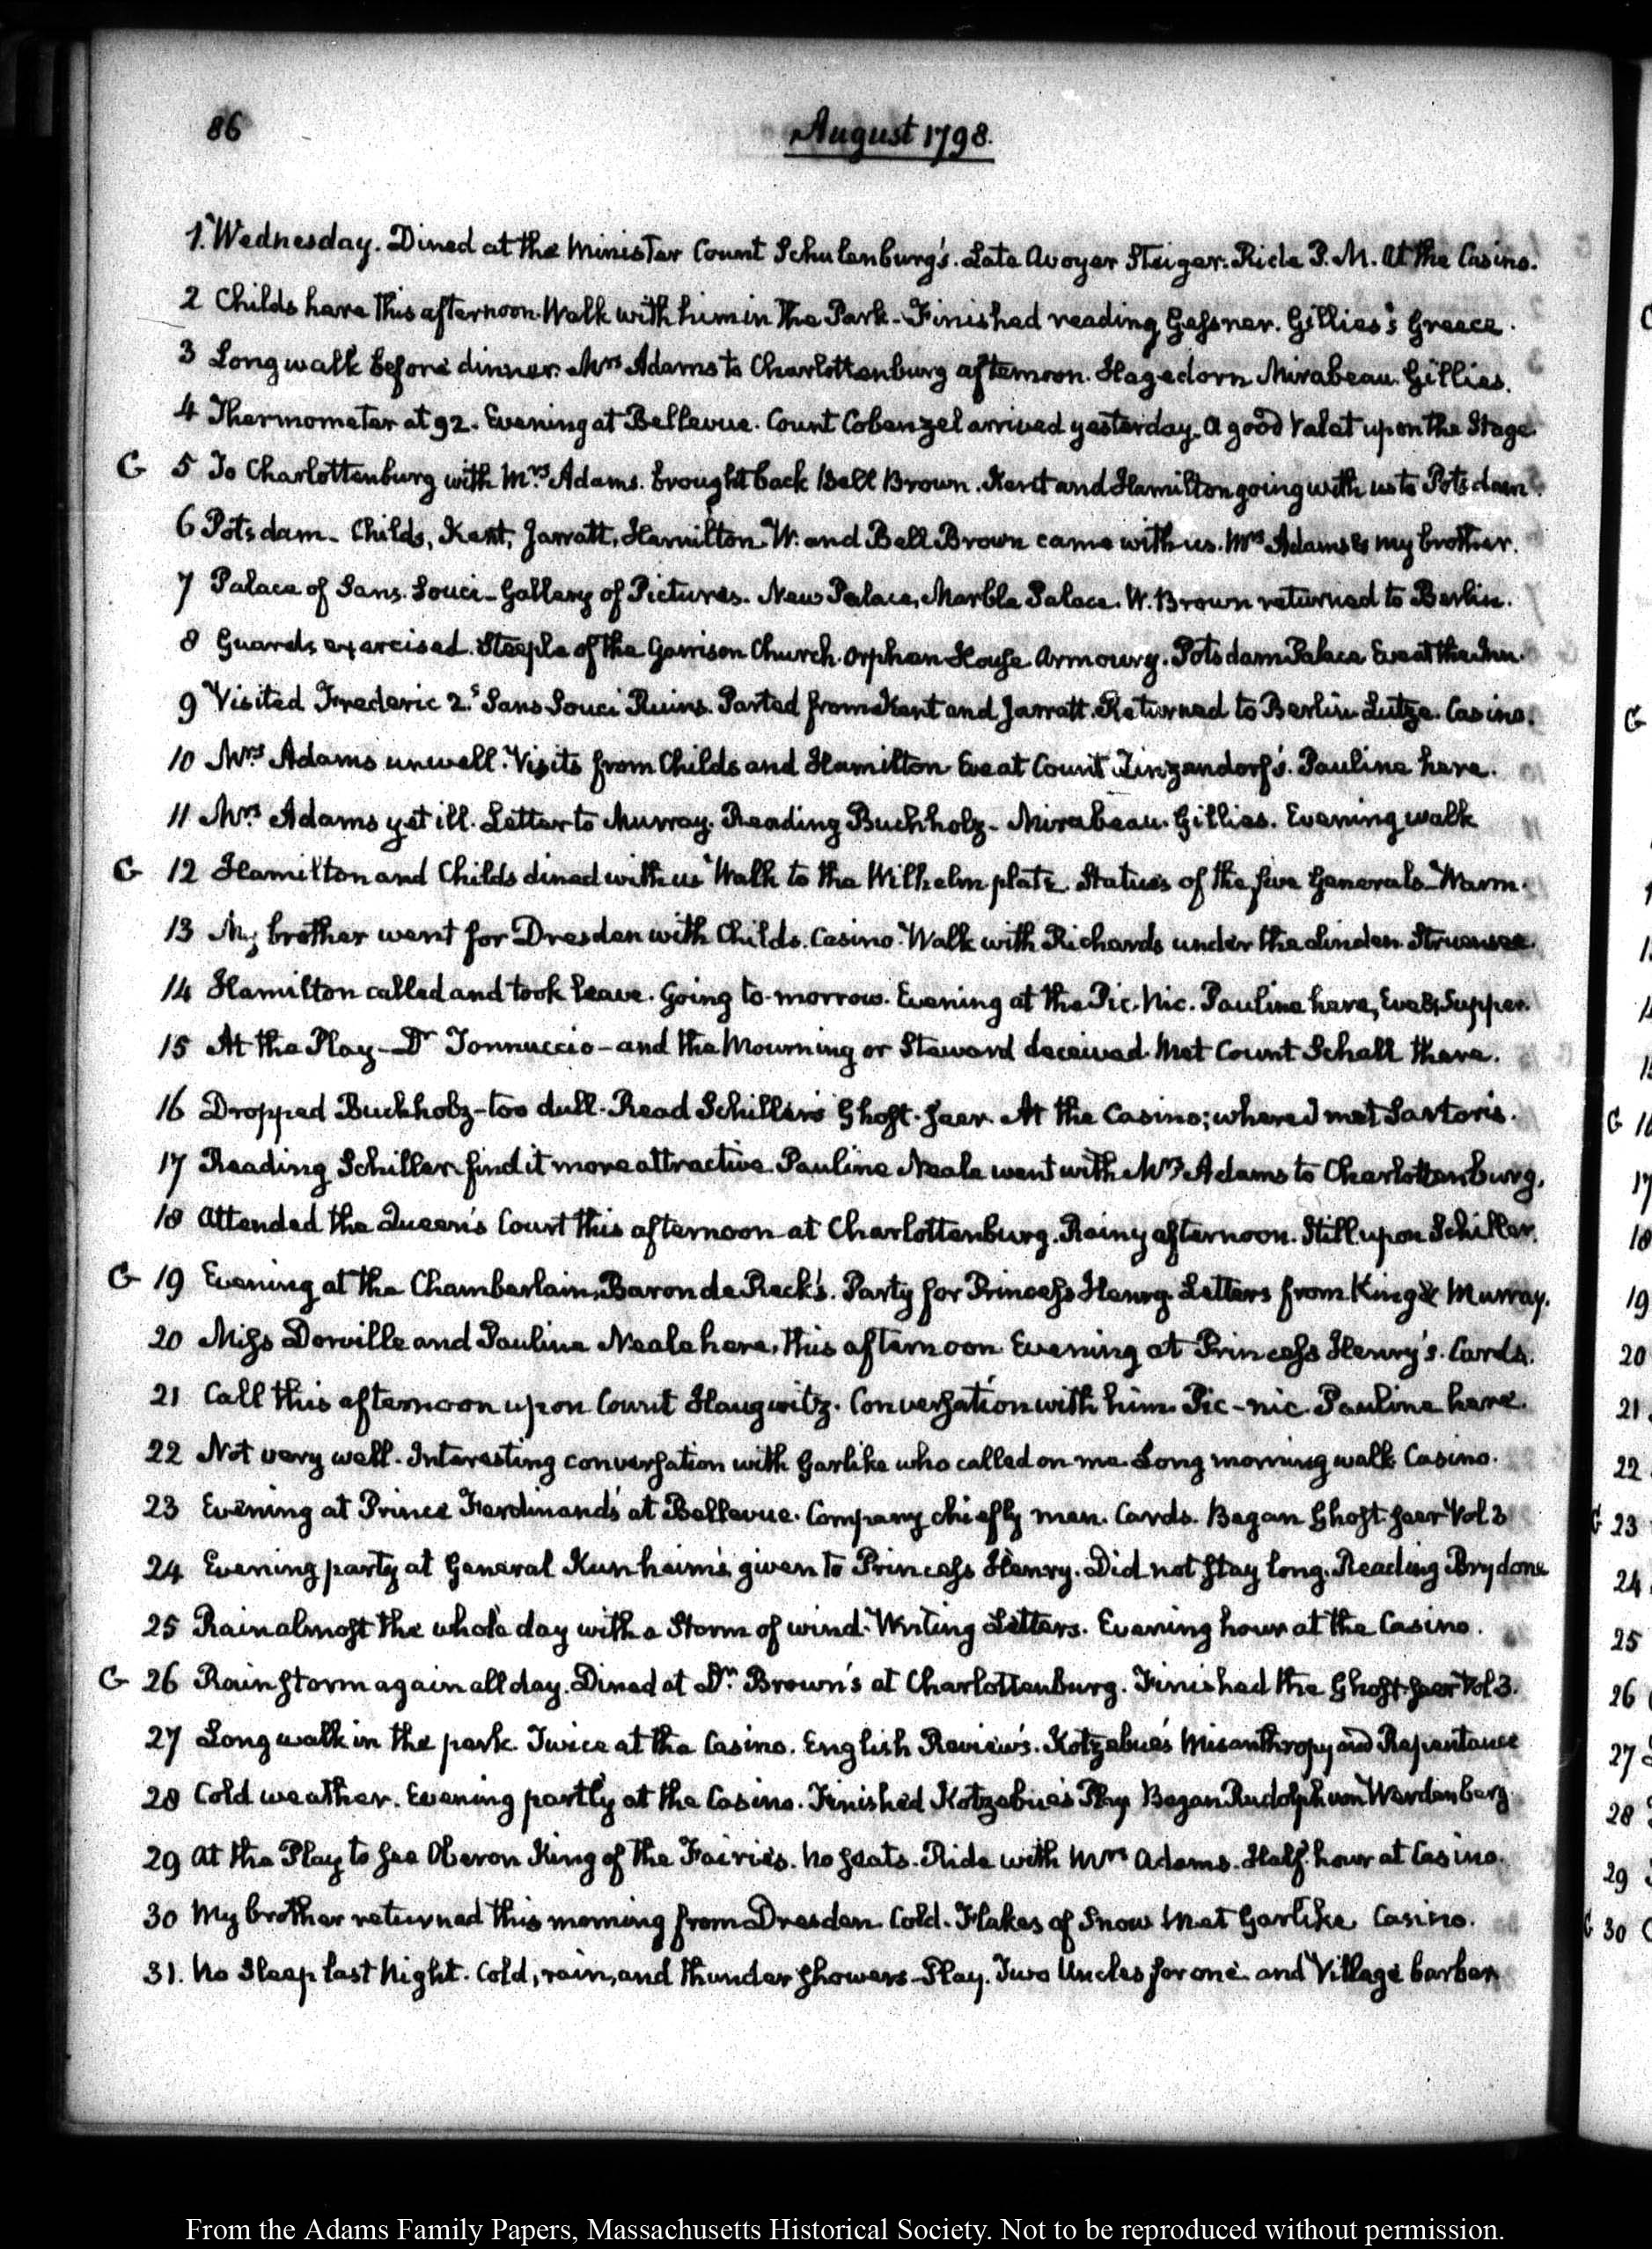 86
August 1798.
1. Wednesday. Dined at the Minister Count Schulenburg's. Late Avoyer Steiger. Ride P.M. At the Casino.
2 Childs here this afternoon. Walk with him in the Park. Finished reading Gessner. Gillies's Greece.
3 Long walk before dinner. Mrs Adams to Charlottenburg afternoon. Hagedorn Mirabeau. Gillies.
4 Thermometer at 92. Evening at Bellevue. Count Cobenzel arrived yesterday. A good Valet upon the Stage
G 5 To Charlottenburg with Mrs Adams. brought back Bell Brown. Kent and Hamilton going with us to Potsdam.
6 Potsdam. Childs, Kent, Jarratt, Hamilton W. and Bell Brown came with us. Mrs Adams & my brother.
7 Palace of Sans. Souci. Gallery of Pictures. New Palace, Marble Palace. W. Brown returned to Berlin.
8 Guards exercised. Steeple of the Garrison Church. Orphan House. Armoury. Potsdam Palace Eve at the Inn.
9 Visited Frederic 2.s Sans Souci Ruins. Parted from Kent and Jarratt. Returned to Berlin Lutze. Casino.
10 Mrs Adams unwell. Visits from Childs and Hamilton Eve at Count Zinzendorf's. Pauline here.
11 Mrs Adams yet ill. Letter to Murray. Reading Buchholz. Mirabeau. Gillies. Evening walk
G 12 Hamilton and Childs dined with us Walk to the Wilhelm platz. Statues of the five Generals. Warm.
13 My brother went for Dresden with Childs. Casino. Walk with Richards under the linden. Struensee.
14 Hamilton called and took leave. Going to-morrow. Evening at the Pic. Nic. Pauline here, Eve & Supper.
15 At the Play. Dr Tonnuccio - and the Mourning or Steward deceived. Met Count Schall there.
16 Dropped Buckholz - too dull. Read Schiller's Ghost-seer. At the Casino; where I met Sartoris.
17 Reading Schiller. find it more attractive. Pauline Neale went with Mrs Adams to Charlottenburg.
18 Attended the Queen's Court this afternoon at Charlottenburg. Rainy afternoon. Still upon Schiller.
G 19 Evening at the Chamberlain, Baron de Reck's. Party for Princess Henry. Letters from King & Murray.
20 Miss Dorville and Pauline Neale here, this afternoon Evening at Princess Henry's. Cards.
21 Call this afternoon upon Count Haugwitz. Conversation with him. Pic-nic. Pauline here.
22 Not very well. Interesting conversation with Garlike who called on me. Long morning walk Casino.
23 Evening at Prince Ferdinand's at Bellevue. Company chiefly men. Cards. Began Ghost-seer Vol 3
24 Evening party at General Kunheim's given to Princess Henry. Did not stay long. Reading Brydone
25 Rain almost the whole day with a Storm of wind. Writing Letters. Evening hour at the Casino.
G 26 Rain storm again all day. Dined at Dr. Brown's at Charlottenburg. Finished the Ghost-seer Vol 3.
27 Long walk in the park. Twice at the Casino. English Reviews. Kotzebue's Misanthropy and Repentance
28 Cold weather. Evening partly at the Casino. Finished Kotzebue's Play Began Rudolph von Werdenberg.
29 At the Play to see Oberon King of the Fairies. No seats. Ride with Mrs Adams. Half hour at Casino.
30 My brother returned this morning from Dresden. Cold. Flakes of Snow Met Garlike. Casino.
31. No Sleep last Night. Cold, rain, and thunder showers. Play. Two Uncles for one and Village barber
From the Adams Family Papers, Massachusetts Historical Society. Not to be reproduced without permission.